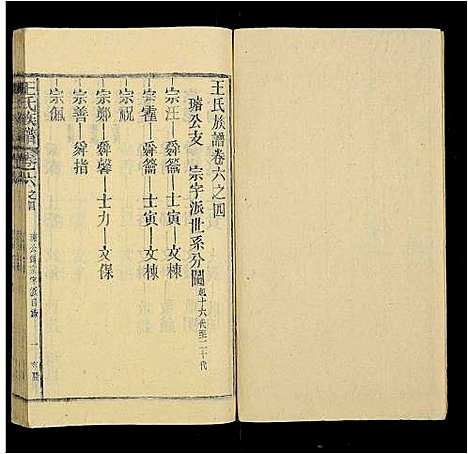 王氏族譜卷六之四
璿公支 宗字派世系分圖起十六代至二十代
宗汪—舜籥—士寅—文棟
宗霍—舜籥—士寅—文棟
宗祝
宗鄭—舜馨—士力—文保
宗善—舜指
宗佩
王氏族譜 卷六之四